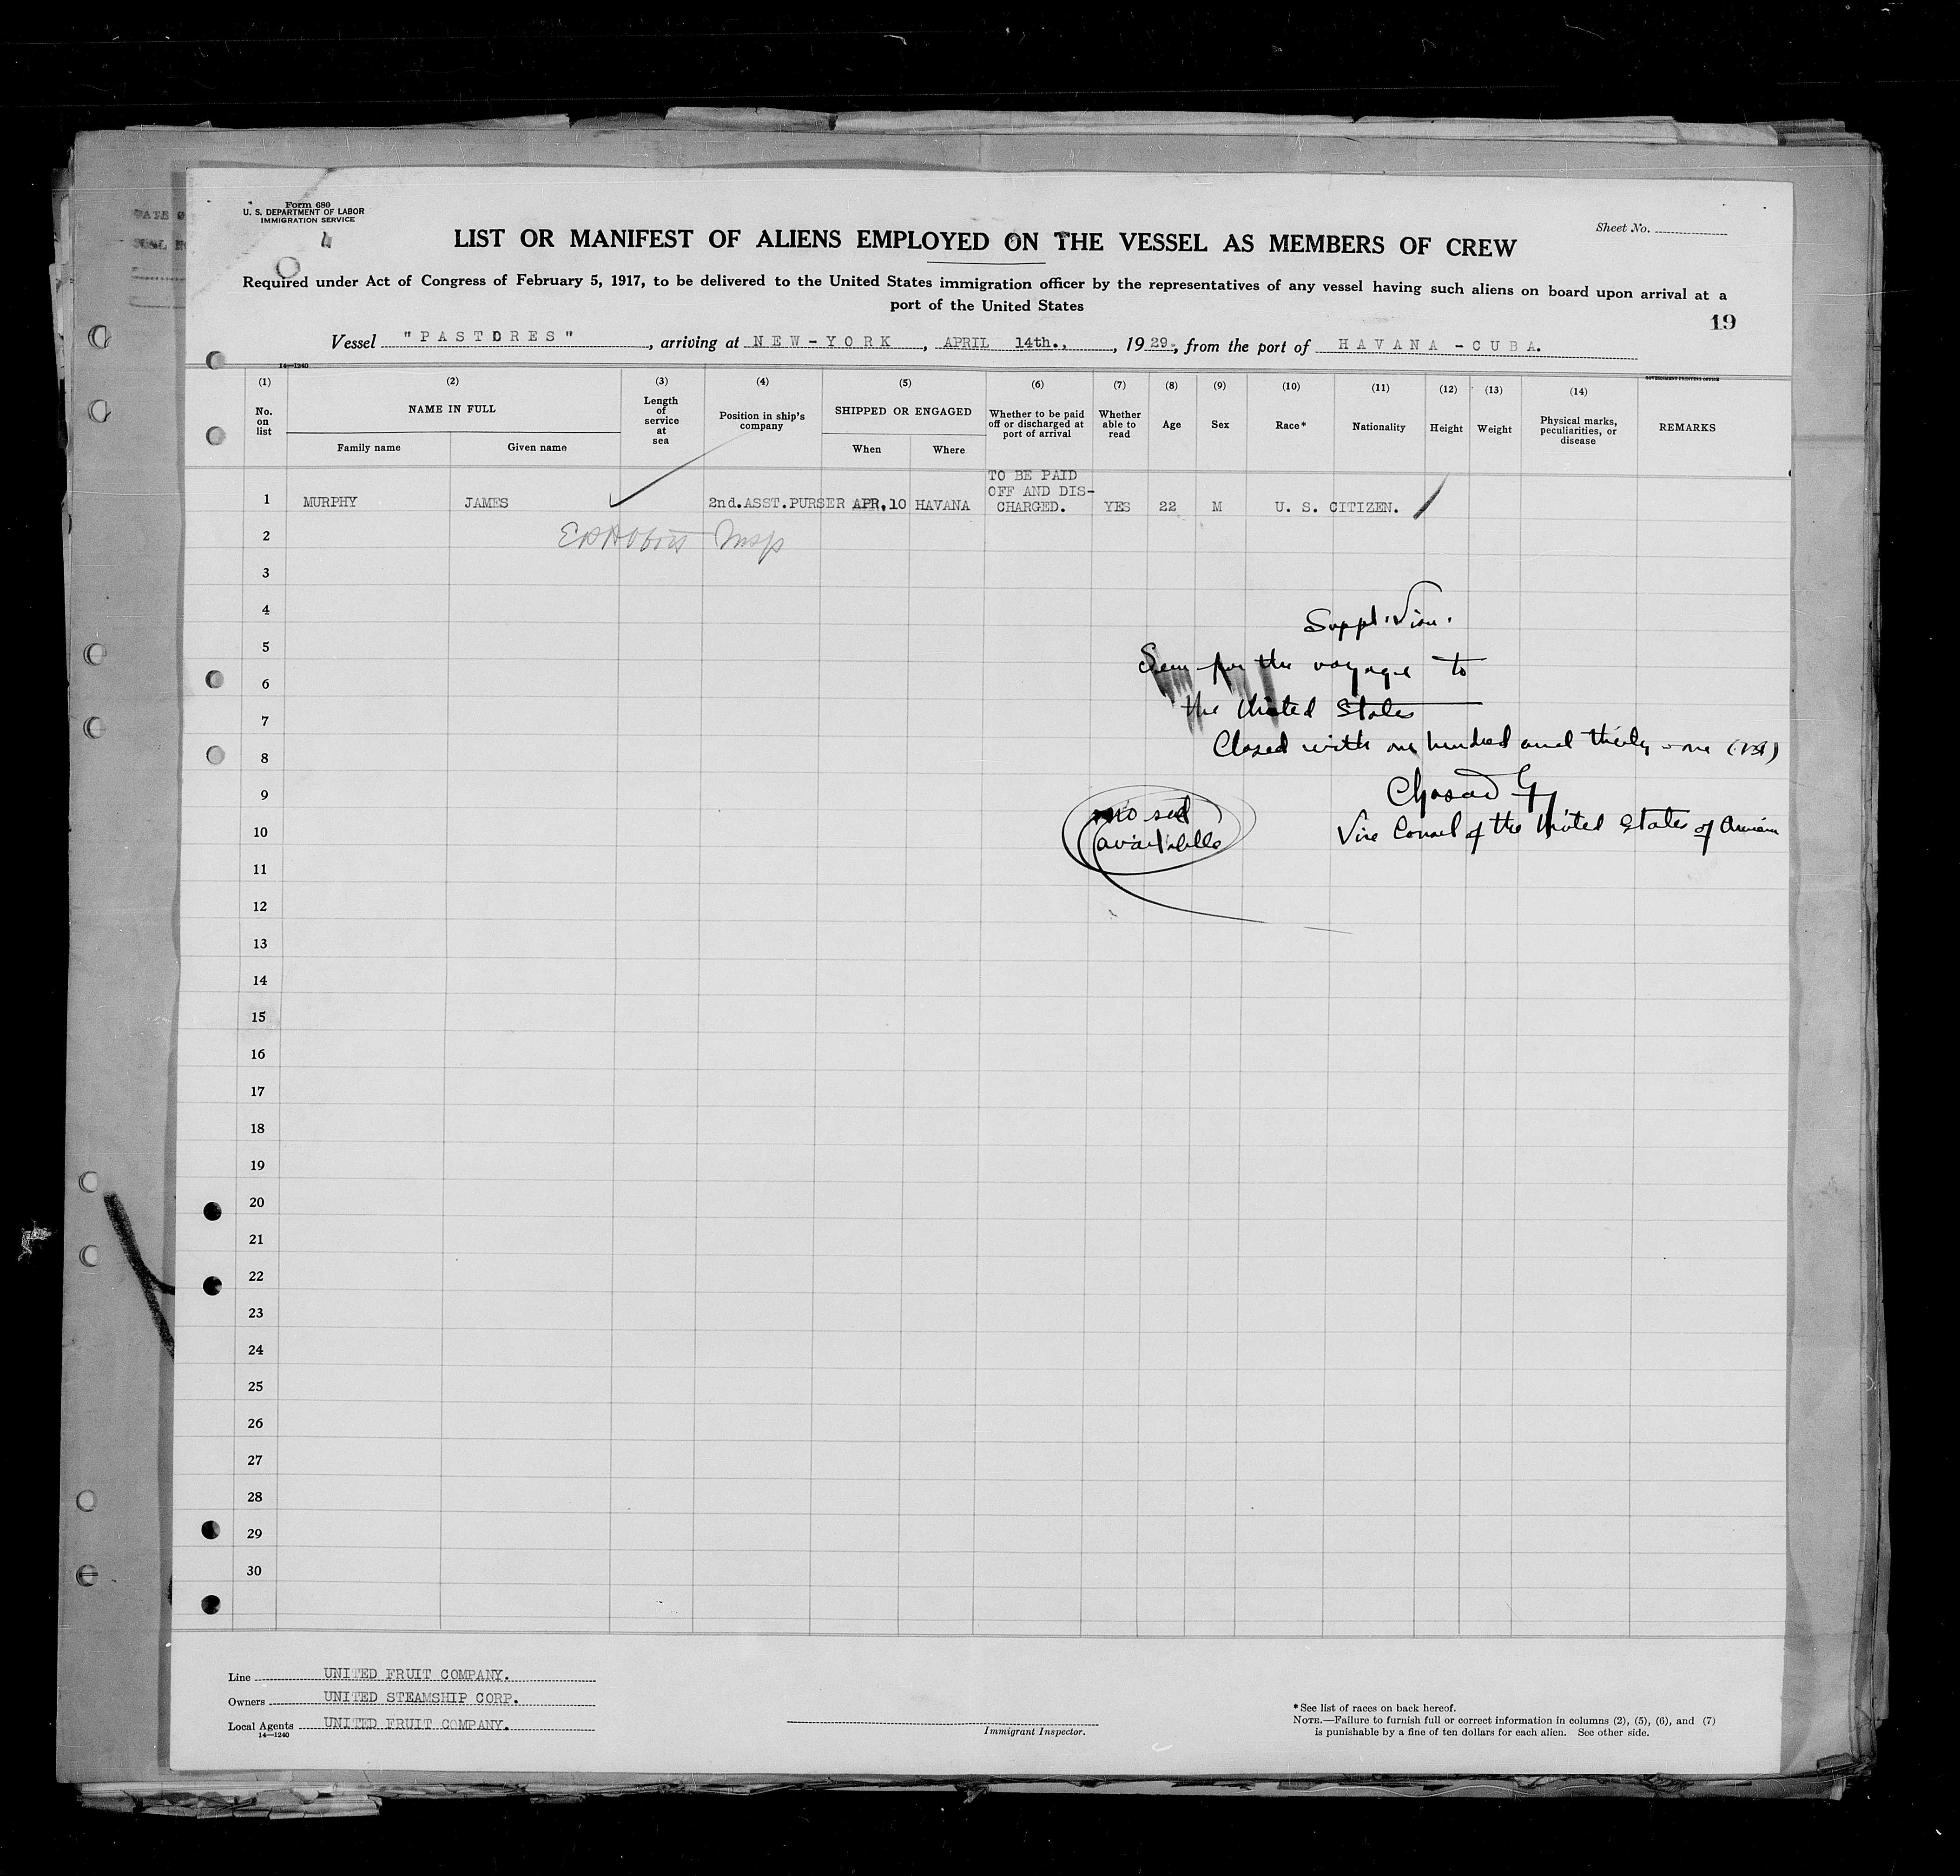 Form 680
U. S. DEPARTMENT OF LABOR
IMMIGRATION SERVICE
Sheet No.
LIST OR MANIFEST OF ALIENS EMPLOYED ON THE VESSEL AS MEMBERS OF CREW
Required under Act of Congress of February 5, 1917, to be delivered to the United States immigration officer by the representatives of any vessel having such aliens on board upon arrival at a
port of the United States
19
Vessel "PASTORES", arriving at NEW-YORK, APRIL 14th., 1929, from the port of HAVANA-CUBA.
14—1240
GOVERNMENT PRINTING OFFICE
(1) (2) (3) (4) (5) (6) (7) (8) (9) (10) (11) (12) (13) (14)
No. on list
NAME IN FULL
Family name
Given name
Length of service at sea
Position in ship's company
SHIPPED OR ENGAGED
When
Where
Whether to be paid off or discharged at port of arrival
Whether able to read
Age
Sex
Race*
Nationality
Height
Weight
Physical marks, peculiarities, or disease
REMARKS
TO BE PAID
OFF AND DIS-
1 MURPHY JAMES 2nd.ASST.PURSER APR.10 HAVANA CHARGED. YES 22 M U. S. CITIZEN.
2 Insp
3
4
Suppl. Visa.
5
Seen for the voyage to
6
the United States
7
Closed with one hundred and thirty-one (131)
8
9
no seal
available
Vice Consul of the United States of
10
11
12
13
14
15
16
17
18
19
20
21
22
23
24
25
26
27
28
29
30
Line UNITED FRUIT COMPANY.
Owners UNITED STEAMSHIP CORP.
Local Agents UNITED FRUIT COMPANY.
14—1240
Immigrant Inspector.
*See list of races on back hereof.
NOTE.—Failure to furnish full or correct information in columns (2), (5), (6), and (7)
is punishable by a fine of ten dollars for each alien. See other side.